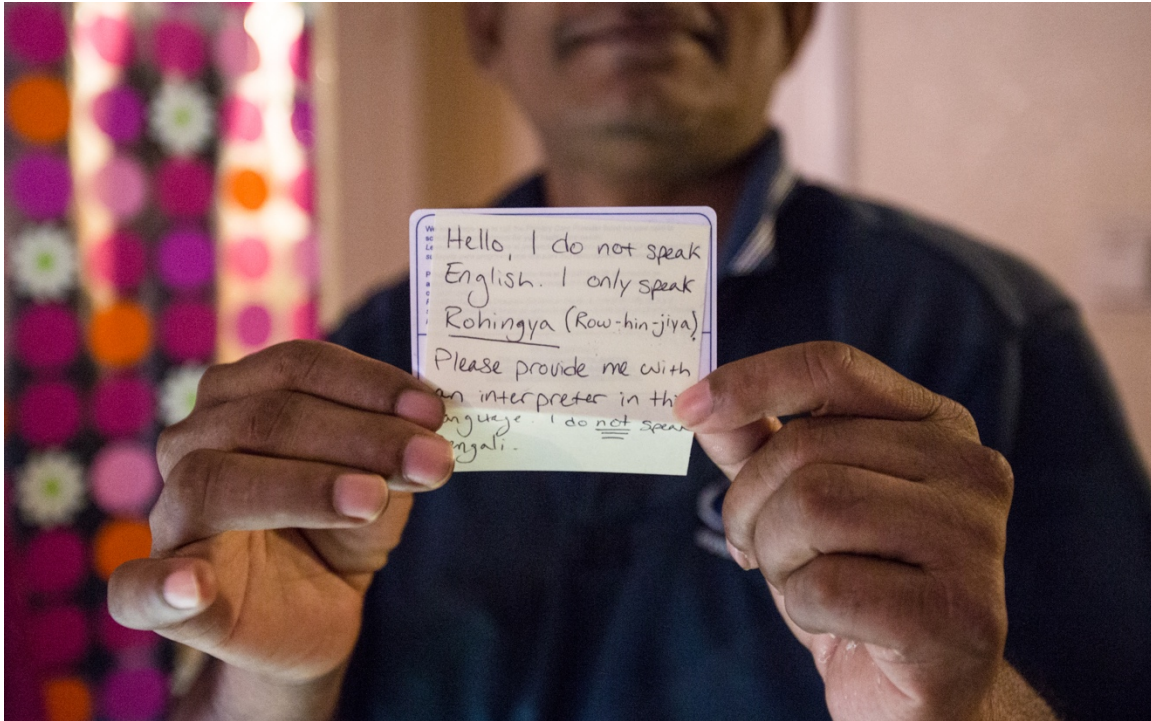 Hello, I do not speak
English. I only speak
Rohingya (Row-hin-jiya).
Please provide me with
an interpreter in
language. I do not speak